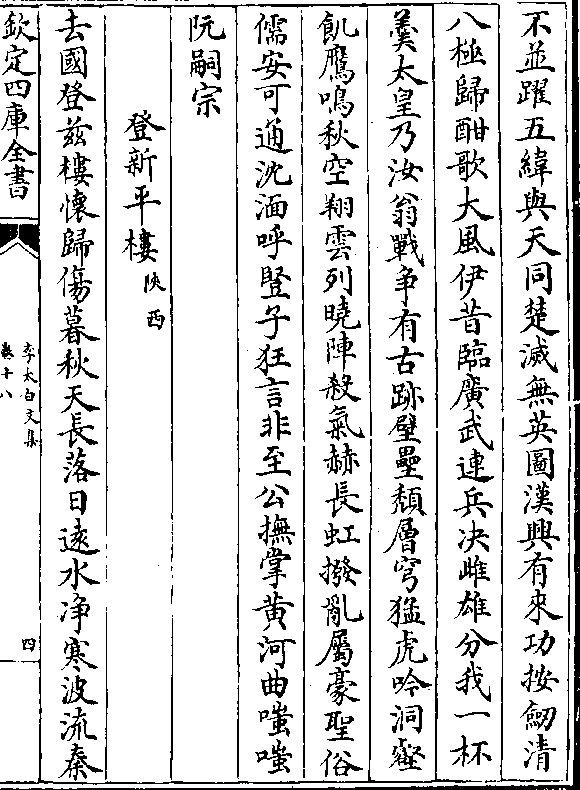 不並躍五緯與天同楚滅無英圖漢興有來功按劒清
八極歸酣歌大風伊昔臨廣武連兵决雌雄分我一杯
羮太皇乃汝翁戰爭有古跡壁壘頹層穹猛虎吟洞壑
飢鷹鳴秋空翔雲列曉陣殺氣赫長虹撥亂屬豪聖俗
儒安可通沈湎呼豎子狂言非至公撫掌黄河曲嗤嗤
阮嗣宗
登新平樓陜西
去國登兹樓懷歸傷暮秋天長落日遠水净寒波流秦
欽定四庫全書
李太白文集
卷十八
四